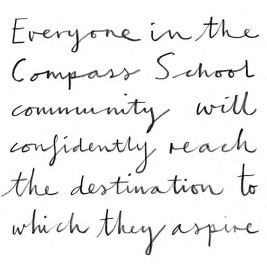 Everyone in the
Compass School
community will
confidently reach
the destination to
which they aspire